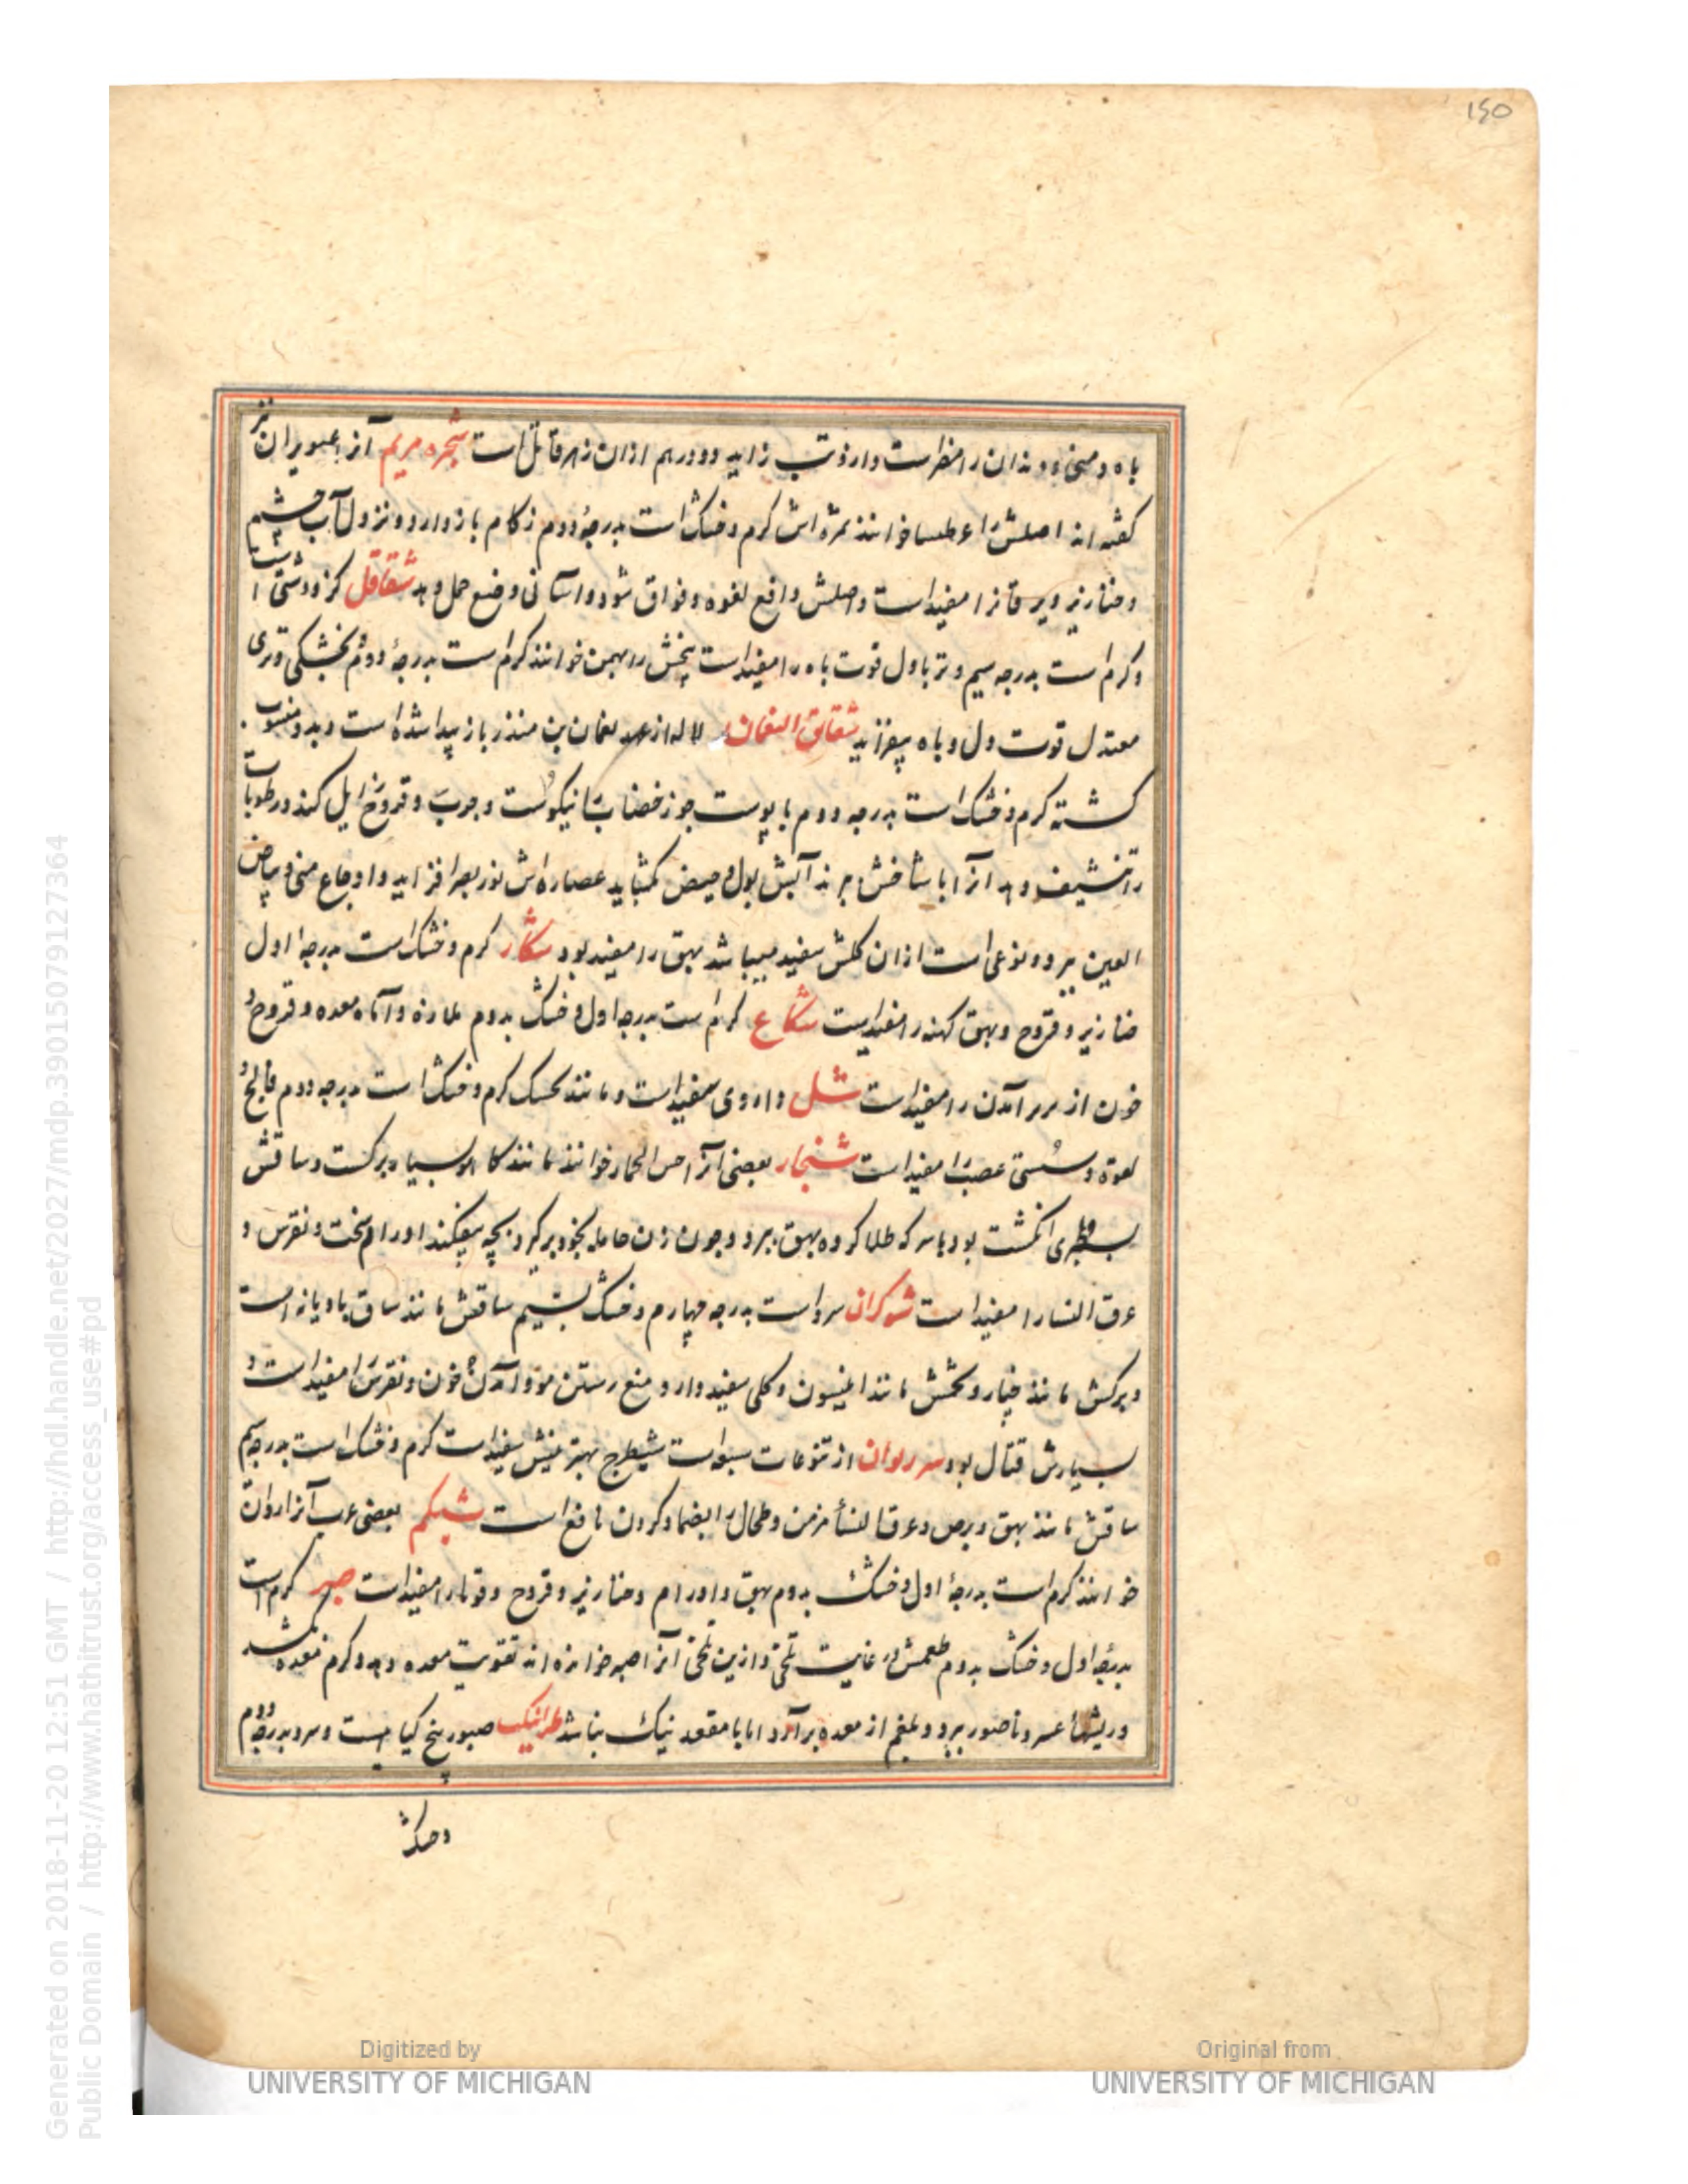 ۱۴۵
باه و منی و دندان را مضر است و ارزوتب زاید و دو درهم ازان زهر قاتل است شجره مریم آنرا عبویران نیز
گفته اند اصلش را عطیسا خوانند ثمره اش کرم و خشک است بدرجهٔ دوم زکام باز دارد و نزول آب چشم
و خنازیر و یرقانرا مفید است و اصلش دافع لقوه و فواق شود و آسانی وضع حمل دهد شقاقل کزر دشتی است
و کرم است بدرجه سیم و تر باول قوت باه را مفید است بیخش را بهمن خوانند کرم است بدرجهٔ دوم بخشکی و تری
معتدل قوت دل و باه بیفزاید شقائق النعمان لاله از عهد نعمان بن منذر باز پیدا شده است و بدو منسوب
کشته کرم و خشک است بدرجه دوم با پوست جوز خضاب را نیکوست و جرب و قروح زایل کند و رطوبات
را تنشیف دهد آنرا با شاخش پزند آبش بول و حیض کشاید عصاره اش نور بصر افزاید و اوجاع منی و بیاض
العین ببرد و نوعی است ازان کلش سفید میباشد بهق را مفید بود شکار کرم و خشک است بدرجه اول
خنازیر و قروح و بهق کهنه را مفید است شکاع کرم است بدرجه اول و خشک بدوم ملازه و آماه معده و قروح و
خون از بر آمدن را مفید است شل داروی سفید است و مانند خسک کرم و خشک است بدرجه دوم فالج و
لقوه و سستی عصب را مفید است شنجار بعضی آنرا خس الحمار خوانند مانند کاهو سیاه برکست و ساقش
بسطبری انکشت بود با سرکه طلا کرده بهق ببرد و چون زن حامله بخود برکیرد بچه بیفکند اورام سخت و نقرس و
عرق النسا را مفید است شوکران سرد است بدرجه چهارم و خشک بسیم ساقش مانند ساق بادیانه است
و برکش مانند خیار و تخمش مانند انیسون و کلی سفید دارد و منع رستن مو و آمدن خون و نقرس را مفید است و
بسیارش قتال بود از تنوعات سبعه است شیطرج بهترینش سفید است کرم و خشک است بدرجه سیم
ساقش مانند بهق و برص و عرق النسأ مزمن و طحال را بضماد کردن نافع است شبکم بعضی عرب آنرا
خوانند کرم است بدرجهٔ اول و خشک بدوم بهق و اورام و خنازیر و قروح و قوبا را مفید است صبر کرم است
بدرجهٔ اول و خشک بدوم طعمش در غایت تلخی و ازین تلخی آنرا صبر خوانده اند تقویت معده دهد و کرم معده بکشد
و ریشهأ عسر و ناصور ببرد و بلغم از معده برآرد اما با مقعد نیک نباشد صبور بیخ کیا هیست و سرد بدرجه دوم
و خشک
Generated on 2018-11-20 12:51 GMT / http://hdl.handle.net/2027/mdp.39015079127364
Public Domain / http://www.hathitrust.org/access_use#pd
Digitized by
UNIVERSITY OF MICHIGAN
Original from
UNIVERSITY OF MICHIGAN